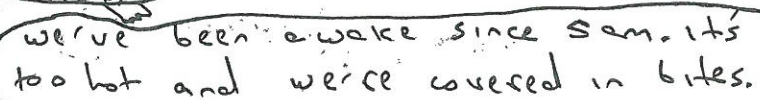 we've been awake since 5am. it's
too hot and we're covered in bites.